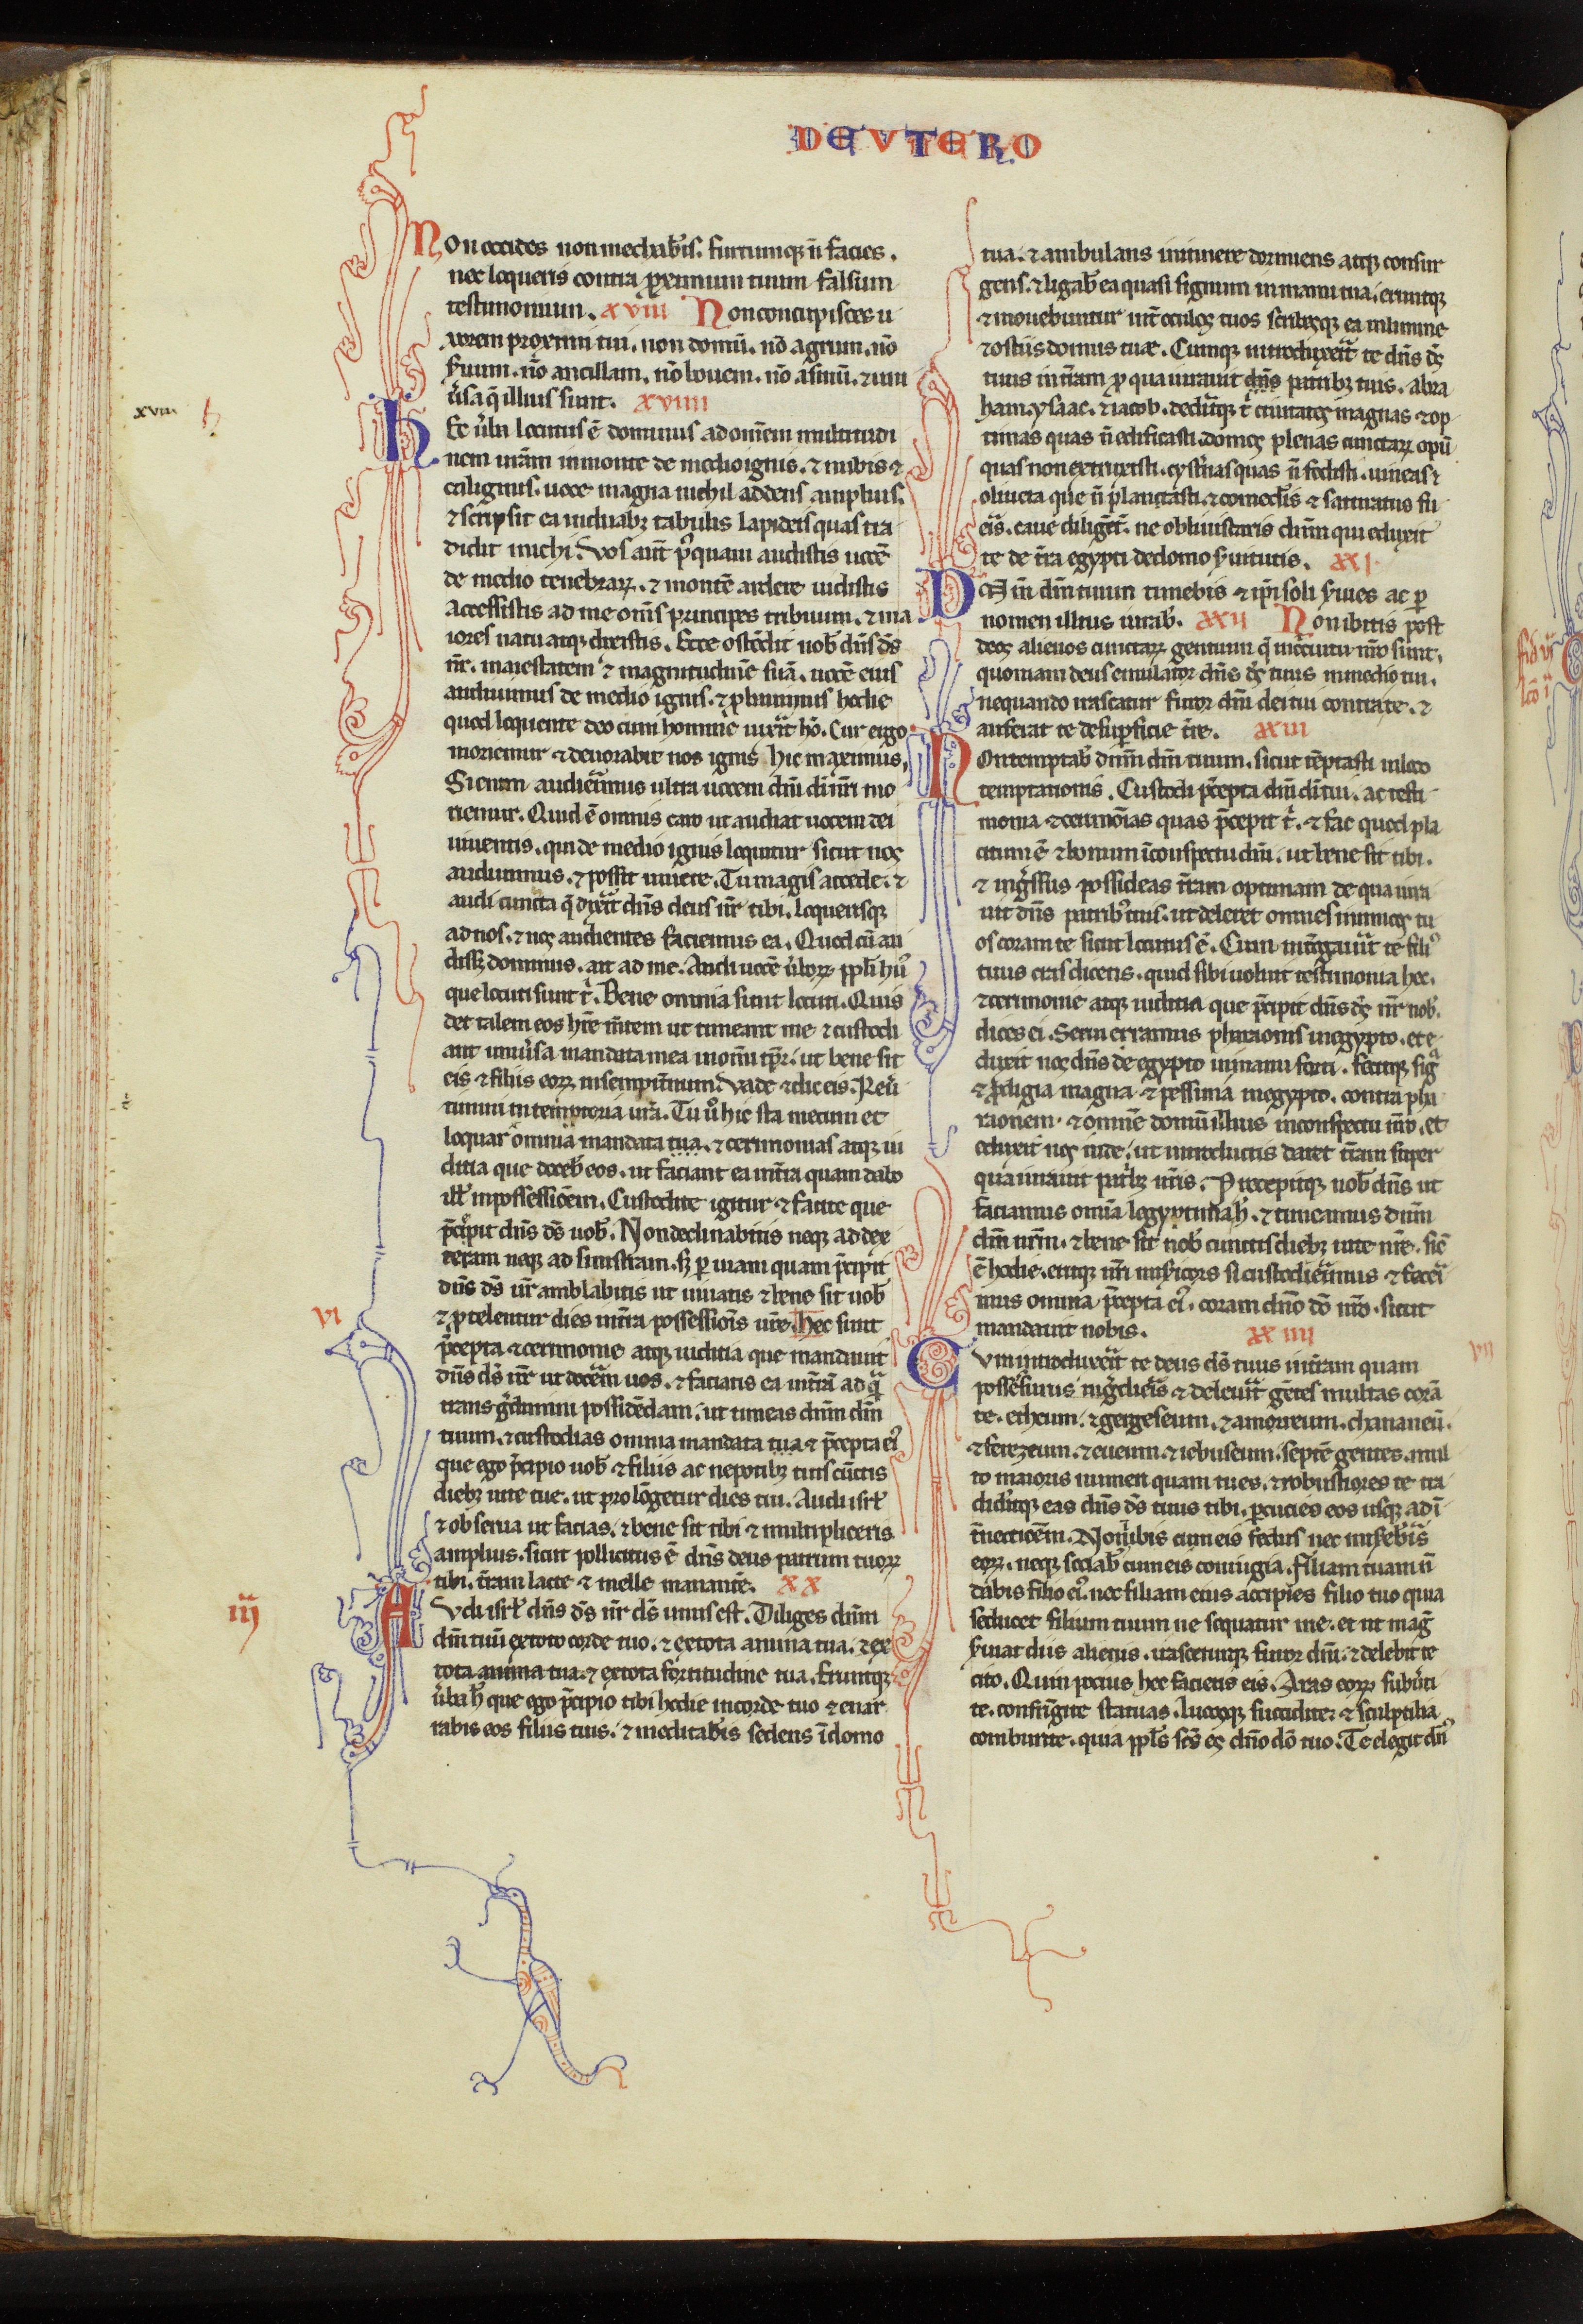 DEVTERO
Non occides non mechab'is. furtumq; n̄ facies.
nec loqueris contra ꝓximum tuum falsum
testimonium. xviii Non concupisces u
xorem proximi tui. non domū. nō agrum. nō
ẜuum. nō ancillam. nō bouem. nō asinū. ⁊ uni
u'sa q̄ illius sunt. xviiii
xviii.
Hec u'ba locutus ē dominus ad om̄em multitudi
nem ur̄am in monte de medio ignis. ⁊ nubis ⁊
caliginis. uoce magna nichil addens amplius.
⁊ scripsit ea in duabz tabulis lapideis quas tra
didit michi. Vos aut̄ p'quam audistis uocē
de medio tenebraꝝ. ⁊ montē ardere uidistis
accessistis ad me om̄s principes tribuum. ⁊ ma
iores natu atq; dixistis. Ecce ostēdit nob' dn̄s ds̄
nr̄. maiestatem ⁊ magnitudinē suā. uocē eius
audiuimus de medio ignis. ⁊ ꝓbauimus hodie
quod loquente deo cum homine uix'it hō. Cur ergo
moriemur ⁊ deuorabit nos ignis hic maximus.
Si enim audierimus ultra uocem dn̄i di nr̄i mo
riemur. Quid ē omnis caro ut audiat uocem dei
uiuentis. qui de medio ignis loquitur sicut nos
audiuimus. ⁊ possit uiuere. Tu magis accede. ⁊
audi cuncta q̄ dix'it dn̄s deus nr̄ tibi. loquerisq;
ad nos. ⁊ nos audientes faciemus ea. Quod cū au
disset dominus. ait ad me. Audiui uocē u'boꝝ ppl'i hui'
que locuti sunt t'. Bene omnia sunt locuti. Quis
det talem eos hr̄e m̄tem ut timeant me ⁊ custodi
ant uniu'sa mandata mea in om̄i tp̄r. ut bene sit
eis ⁊ filiis eoꝝ in sempit'num. Vade ⁊ dic eis. Reu'
timini in temptoria ur̄a. Tu u° hic sta mecum et
loquar omnia mandata tua. ⁊ cerimonias atq; iu
ditia que doceb' eos. ut faciant ea in t'ra quam dabo
ill' in possessiōem. Custodite igitur ⁊ facite que
p̄cepit dn̄s ds̄ uob'. Non declinabitis neq; ad dex
teram neq; ad sinistram. sꝫ ꝑ uiam quam p̄cipit
dn̄s ds̄ ur̄ amblabitis ut uiuatis ⁊ bene sit uob'
vi
⁊ ꝓtelentur dies in t'ra possessiōis ur̄e. Hec sunt
p̄cepta ⁊ cerimonie atq; iuditia que mandauit
dn̄s ds̄ nr̄ ut docēam uos. ⁊ faciatis ea in t'rā ad q̄
transg'dimini possidēdam. ut timeas dn̄m dm̄
tuum. ⁊ custodias omnia mandata tua ⁊ p̄cepta ei'
que ego p̄cipio uob' ⁊ filiis ac nepotibz tuis cūctis
diebz uite tue. ut prolōgetur dies tui. Audi isrl'
⁊ obserua ut facias. ⁊ bene sit tibi ⁊ multipliceris
amplius. sicut pollicitus ē dn̄s deus patrum tuoꝝ
tibi. t'ram lacte ⁊ melle manantē. xx
iij
Avdi isrl' dn̄s ds̄ nr̄ ds̄ unus est. Diliges dn̄m
dm̄ tuū ex toto corde tuo. ⁊ ex tota anima tua. ⁊ ex
tota anima tua. ⁊ ex tota fortitudine tua. Eruntq;
u'ba h' que ego p̄cipio tibi hodie in corde tuo ⁊ enar
rabis eos filiis tuis. ⁊ meditab'is sedens ī domo
tua. ⁊ ambulans in itinere dormiens atq; consur
gens. ⁊ ligab' ea quasi signum in manu tua. eruntq;
⁊ mouebuntur int' oculos tuos scribesq; ea in limine
⁊ ostiis domus tuæ. Cumq; introdux'it te dn̄s ds̄
tuus in t'ram ꝓ qua iurauit dn̄s patribz tuis. abra
ham. ysaac. ⁊ iacob. dederitq; t' ciuitates magnas ⁊ op
timas quas n̄ edificasti. domos plenas cunctaꝝ opū
quas non extruxisti. cyst'nas quas n̄ fodisti. uineas ⁊
oliueta que n̄ plantasti. ⁊ comed'is ⁊ saturatus fu
eis. caue diligēt'. ne obliuiscaris dn̄m qui eduxit
te de t'ra egypti de domo ẜuitutis. xxj.
Dn̄m dm̄ tuum timebis ⁊ ip̄i soli ẜuies ac ꝑ
nomen illius iurab'. xxii Non ibitis post
deos alienos cunctaꝝ gentium q̄ in c'cuitu ur̄o sunt.
quoniam deus emulator dn̄s ds̄ tuus in medio tui.
nequando irascatur furor dn̄i dei tui contra te. ⁊
auferat te de suꝑficie t're. xxiii
Non temptab' dn̄m dm̄ tuum. sicut tēptasti in loco
temptationis. Custodi p̄cepta dn̄i di tui. ac testi
monia ⁊ cerimōias quas p̄cepit t'. ⁊ fac quod pla
citum ē ⁊ bonum ī conspectu dn̄i. ut bene sit tibi.
⁊ ing'ssus possideas t'ram optimam de qua iura
uit dn̄s patrib' tuis. ut deleret omnes inimicos tu
os coram te sicut locutus ē. Cum int'rogau'it te fili'
tuus cras dicens. quid sibi uolunt testimonia hec.
⁊ cerimonie atq; iuditia que p̄cepit dn̄s ds̄ nr̄ nob'.
dices ei. Serui eramus pharaonis in egypto. et e
duxit nos dn̄s de egypto in manu forti. fecitq; sig
⁊ ꝓdigia magna ⁊ pessima in egypto. contra pha
raonem. ⁊ omnē domū illius in conspectu nr̄o. et
eduxit nos inde. ut introductis daret t'ram super
qua iurauit pat'bz nr̄is. P'recepitq; nob' dn̄s ut
faciamus omīa legyptima h'. ⁊ timeamus dn̄m
dm̄ nr̄m. ⁊ bene sit nob' cunctis diebz uite nr̄e. sic̄
ē hodie. eritq; nr̄i mis'icors si custodierimus ⁊ fec'i
mus omnia p̄cepta ei'. coram dn̄o dō nr̄o. sicut
mandauit nobis. xx iiii
vii
Cvm introdux'it te deus ds̄ tuus in t'ram quam
possessurus ing'dieris ⁊ deleu'it gētes multas corā
te. etheum. ⁊ gergeseum. ⁊ amorreum. chananeū.
⁊ ferezeum. ⁊ eueum. ⁊ iebuseum. septē gentes. mul
to maioris numeri quam tu es. ⁊ robustiores te tra
dideritq; eas dn̄s ds̄ tuus tibi. ꝑcucies eos usq; ad ī
t'necciōem. Non inibis cum eis fedus nec mis'eb'is
eoꝝ. neq; sociab' cum eis coniugia. filiam tuam n̄
dabis filio ei'. nec filiam eius accipies filio tuo quia
seducet filium tuum ne sequatur me. et ut mag'
ẜuiat diis alienis. irasceturq; furor dn̄i. ⁊ delebit te
cito. Quin pocius hec facietis eis. Aras eoꝝ subu'ti
te. confrīgite statuas. lucosq; succidite ⁊ sculptilia
comburite. quia ppl's sc̄s es dn̄o dō tuo. Te elegit dn̄s